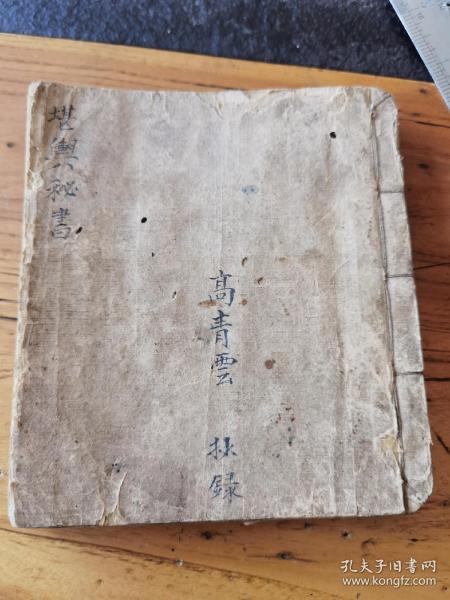 堪輿秘書
高青雲 抄録
孔夫子旧书网
www.kongfz.com